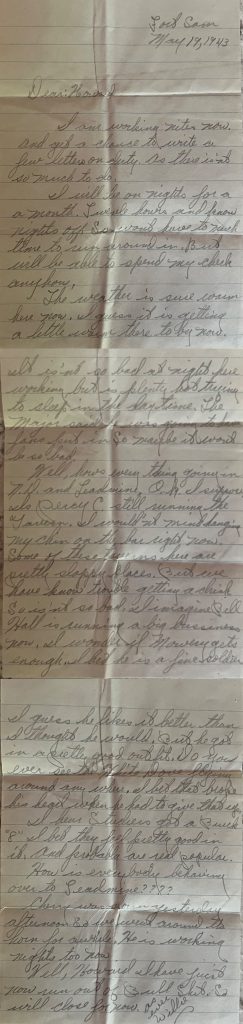 Fort Sam
May 19, 1943
Dear Howard
I am working nites now.
and get a chance to write a
few letters on duty. As there isnt
so much to do.
I will be on nights for a
a month. Twelve hours and know
nights off. So wont have to much
time to run around in. But
will be able to spend my check
anyhow.
The weather is sure warm
here now. I guess it is getting
a little warm there to by now.
It isnt so bad at night here
working but is plenty hot trying
to sleep in the day time. The
Major said he was going to have
fans put in so maybe it wont
be so bad.
Well, hows every thing going in
and Leadmine, O.K. I suppose
Is Percy C still running the
Tavern. I would'nt mind hanging
my chin on the bar right now.
Some of these taverns here are
pretty sloppy places. But we
have know trouble getting a drink
So is not so bad. I imagine Bill
Hall is running a big bussiness
now. I wonder if Mowery gets
enough. I bet he is a fine soldier
I guess he likes it better than
I thought he would. But he got
in a pretty good outfit. Do you
ever see the
around any where. I bet that broke
his heart when he had to give that up.
I hear got a Buick
"8" I bet they feel pretty good in
it. and probably are real popular.
How is everybody behaving
over to Leadmine????
was in yesterday
afternoon So we went around the
horn for awhile. He is working
nights too now
Well, Howard I have just
now run out of Bull Shit. So
will close for now.
as ever
Willie